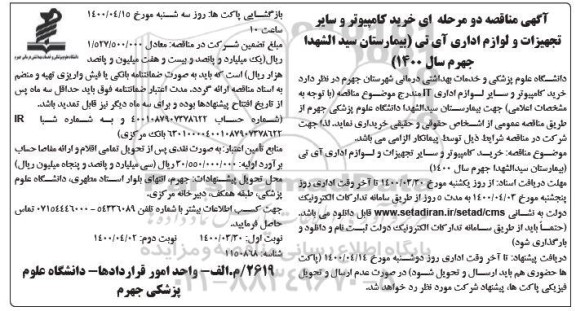 آگهی مناقصه دو مرحله ای خرید کامپیوتر و سایر
تجهیزات و لوازم اداری آی تی (بیمارستان سید الشهدا
جهرم سال ۱۴۰۰)
دانشگاه علوم پزشکی و خدمات بهداشتی درمانی شهرستان جهرم در نظر دارد
خرید کامپیوتر و سایر لـوازم اداری IT مندرج موضوع مناقصه (با توجه به
مشخصات اعلامی) جهت بیمارستـان سیدالشهدا دانشگاه علوم پزشکی جهرم از
طریق مناقصه عمومی از اشـخاص حقوقی و حقیقی خریداری نماید. لـذا جهت
شرکت در مناقصه شرایط ذیل توسط پیمانکار الزامی می باشد.
موضوع مناقصه: خریـد کامپیوتر و سـایر تجهیزات و لـوازم اداری آی تی
(بیمارستان سیدالشهدا جهرم سال ۱۴۰۰)
مهلت دریافت اسناد: از روز یکشنبه مورخ ۱۴۰۰/۰۳/۳۰ تا آخر وقت اداری روز
پنجشنبه مورخ ۱۴۰۰/۰۴/۰۳ به مدت ۵ روز از طریق سامانه تدارکات الکترونیک
دولت به نشانی www.setadiran.ir/setad/cms قابل دانلود می باشد.
(حتمـاً باید از طریق سامانه تدارکات الکترونیک دولت ثبت نام و دانلود و
بارگذاری شود)
دریافت پیشنهاد: تا آخر وقت اداری روز دوشنبه مورخ ۱۴۰۰/۰۴/۱۴ (پاکت
ها حضوری هم باید ارسـال و تحویل شـود) در صورت عدم ارسال و تحویل
فیزیکی پاکت ها، پیشنهاد شرکت مورد نظر رد خواهد شد.
بازگشایی پاکت ها: روز سه شنبه مورخ ۱۴۰۰/۰۴/۱۵
ساعت ۱۰
مبلغ تضمین شـرکت در مناقصه: معادل ۱/۵۲۷/۵۰۰/۰۰۰
ریال(یک میلیارد و پانصد و بیست و هفت میلیون و پانصد
هزار ریال) است که باید به صورت ضمانتنامه بانکی یا فیش واریزی تهیه و منضم
به اسناد مناقصه گردد. مدت اعتبار ضمانتنامه فوق باید حداقل سه ماه پس
از تاریخ افتتاح پیشنهادها بوده و برای سه ماه دیگر نیز قابل تمدید باشد.
منابع تأمین اعتبار: به صورت نقدی پس از تحویل تمامی اقلام و ارائه مفاصا حساب
برآورد اولیه: ۳۰/۵۵۰/۰۰۰/۰۰۰ ریال (سی میلیارد و پانصد و پنجاه میلیون ریال)
محل تحویل پیشنهـادات: جهرم، انتهای بلوار استـاد مطهری، دانشگاه علوم
پزشکی، طبقه همکف، دبیرخانه مرکزی.
جهت کسـب اطلاعات بیشتر با شماره تلفن ۵۴۳۳۶۰۸۹ - ۰۷۱۵۴۴۴۶۰۰۰ تماس
حاصل فرمایید.
نوبت اول: ۱۴۰۰/۰۳/۳۰ نوبت دوم: ۱۴۰۰/۰۴/۰۲
شناسه: ۱۱۵۰۸۶۸
۲۶۱۹/م.الف- واحد امور قراردادها- دانشگاه علوم
پزشکی جهرم